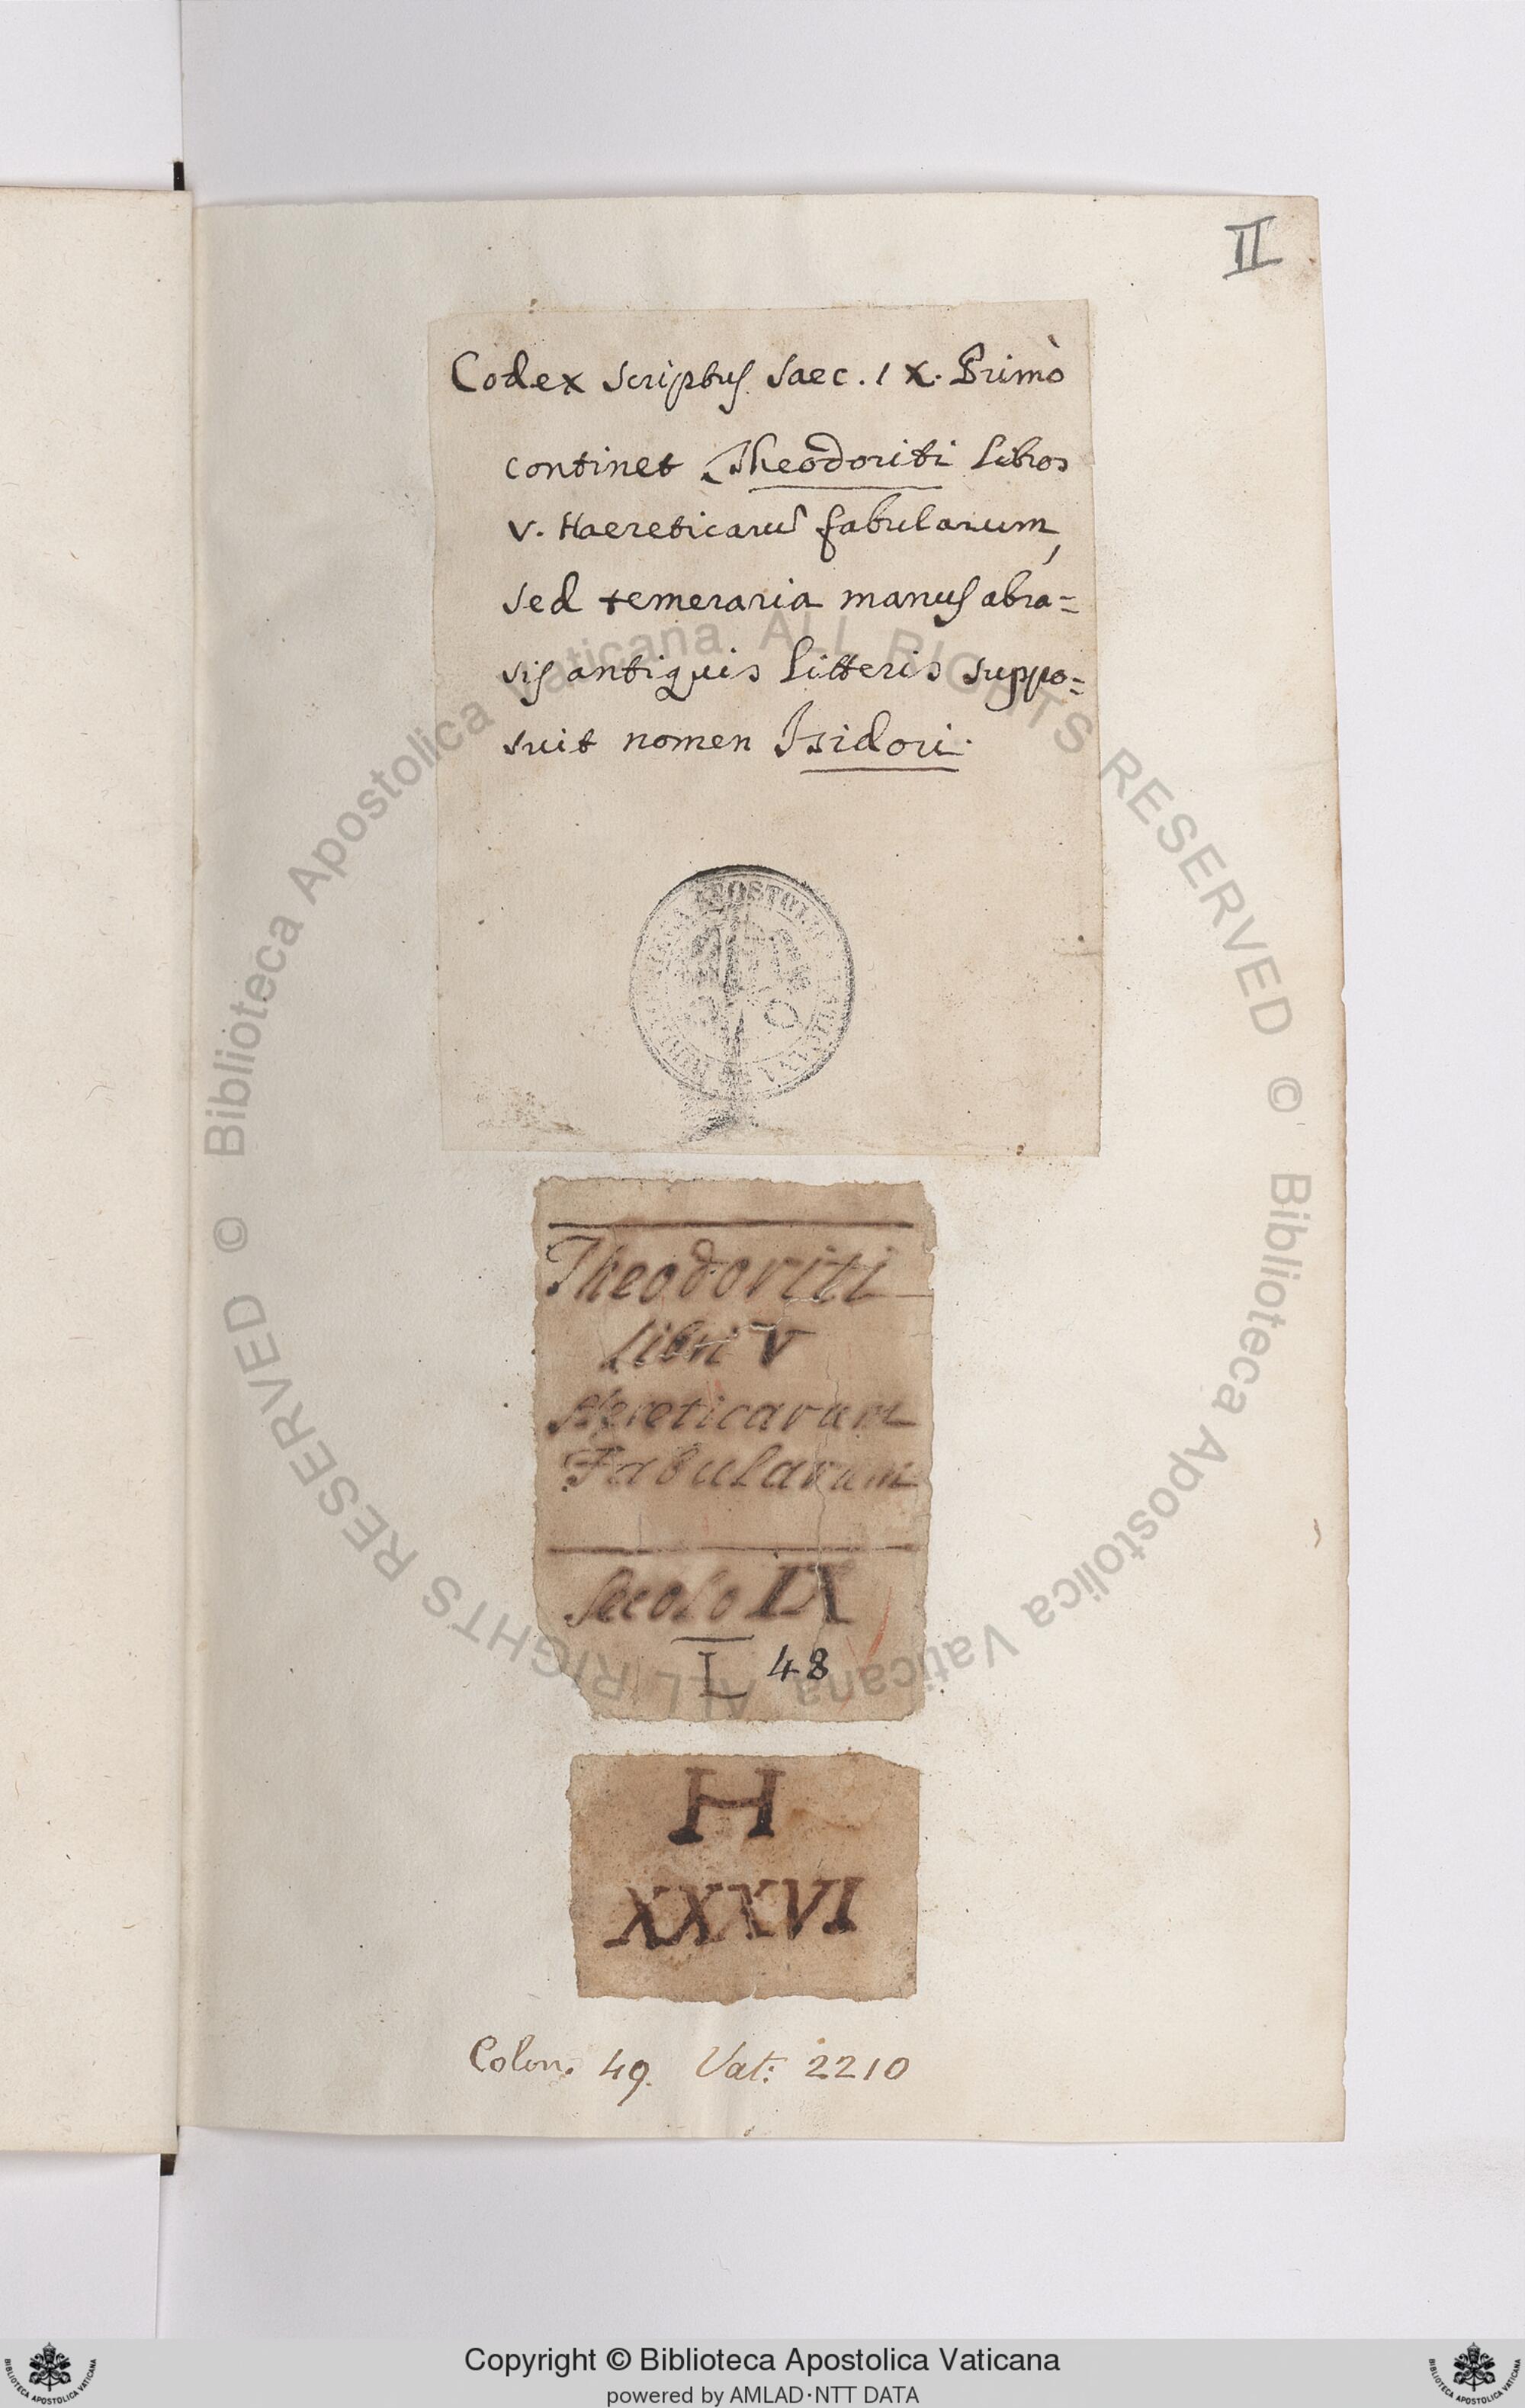 II
Codex scriptus saec. IX. Primò
continet Theodoriti libros
V. Haereticarū fabularum,
sed temeraria manus abra=
sis antiquis litteris suppo=
suit nomen Isidori.
Theodoriti
libri V
Hereticarum
Fabularum
Secolo IX
I 48
H
XXXVI
Colon. 49. Vat: 2210
© Biblioteca Apostolica Vaticana ALL RIGHTS RESERVED
© Biblioteca Apostolica Vaticana ALL RIGHTS RESERVED
Copyright © Biblioteca Apostolica Vaticana
powered by AMLAD·NTT DATA
BIBLIOTECA APOSTOLICA VATICANA
BIBLIOTECA APOSTOLICA VATICANA